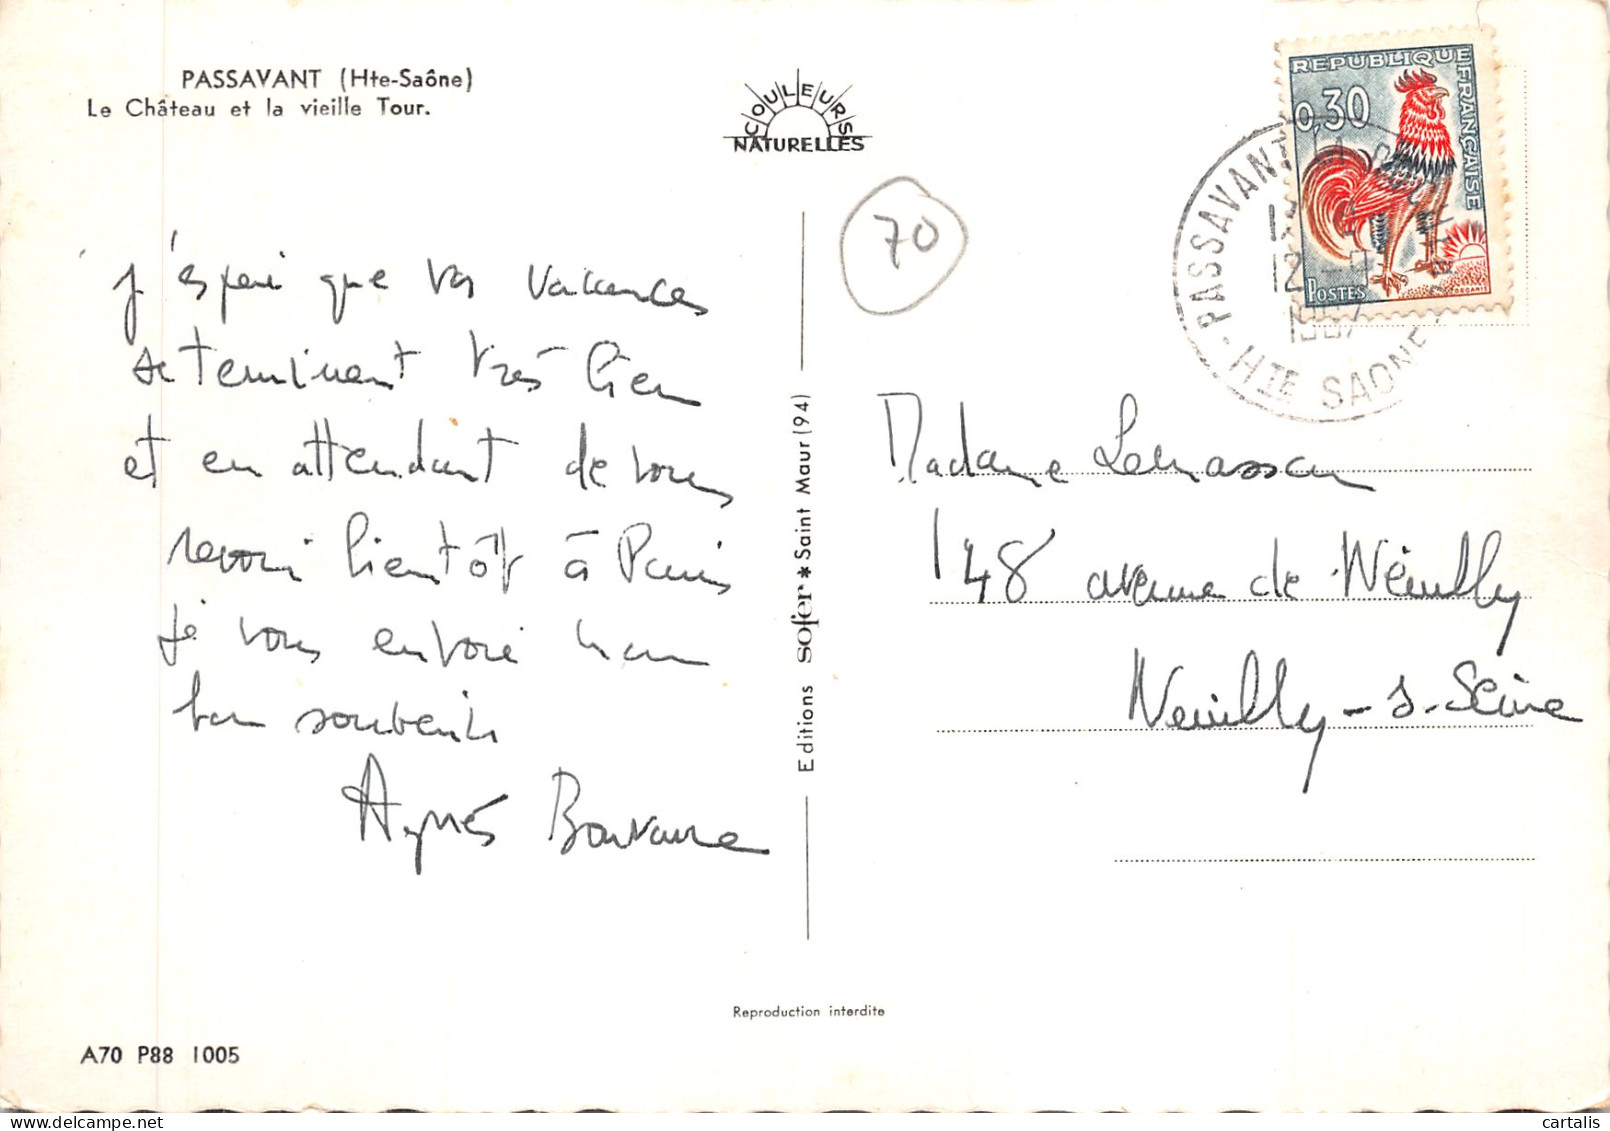 PASSAVANT (Hte-Saône)
Le Château et la vieille Tour.
COULEURS
NATURELLES
REPUBLIQUE FRANÇAISE
0,30
POSTES
PASSAVANT LA ROCHERE
12
1967
HTE SAONE
70
j'espère que vos vacances
se terminent très bien
et en attendant de vous
revoir bientôt à Paris
je vous envoie mon
bon souvenir
Agnès
Editions sofer * Saint Maur (94)
Madame Lemasson
148 avenue de Neuilly
Neuilly-s-Seine
Reproduction interdite
A70 P88 1005
cartalis